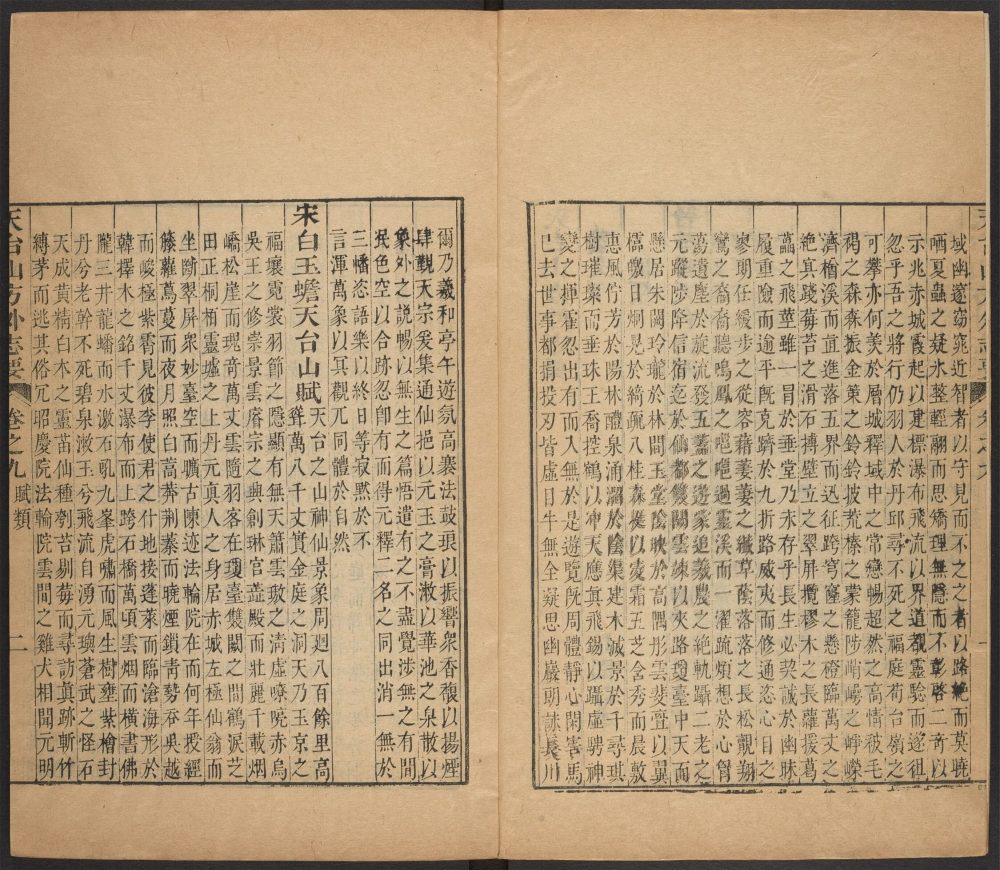 域幽邃窈窕近智者以守見而不之之者以路絕而莫曉
哂夏蟲之疑氷整輕翮而思矯理無隱而不彰啓二奇以
示兆赤城霞起以建標瀑布飛流以界道覩靈驗而遂徂
忽乎吾之將行仍羽人於丹邱尋不死之福庭苟台嶺之
可攀亦何羨於層城釋域中之常戀暢超然之高情被毛
褐之森森振金策之鈴鈴披荒榛之蒙蘢陟峭崿之崢嶸
濟楢溪而直進落五界而迅征跨穹窿之懸磴臨萬丈之
絕冥踐莓苔之滑石搏壁立之翠屏攬樛木之長蘿援葛
藟之飛莖雖一冐於垂堂乃永存乎長生必契誠於幽昧
履重險而逾平旣克隮於九折路威夷而修通恣心目之
寥朗任緩步之從容藉萋萋之纖草蔭落落之長松覿翔
鸞之裔裔聽鳴鳳之嗈嗈過靈溪而一濯疏煩想於心胷
蕩遺塵於旋流發五蓋之遊蒙追羲農之絕軌躡二老之
元蹤陟降信宿迄於仙都雙闕雲竦以夾路瓊臺中天而
懸居朱闕玲瓏於林間玉堂陰映於高隅彤雲斐亹以翼
櫺皦日烱晃於綺疏八桂森挺以凌霜五芝含秀而晨敷
惠風佇芳於陽林醴泉涌溜於陰渠建木滅景於千尋琪
樹璀璨而垂珠王喬控鶴以冲天應眞飛錫以躡虛騁神
變之揮霍忽出有而入無於是遊覽旣周體靜心閑害馬
已去世事都捐投刃皆虛目牛無全凝思幽巖朗詠長川
爾乃羲和亭午遊氛高褰法鼓琅以振響衆香馥以揚煙
肆覲天宗爰集通仙挹以元玉之膏漱以華池之泉散以
象外之說暢以無生之篇悟遣有之不盡覺涉無之有間
泯色空以合跡忽卽有而得元釋二名之同出消一無於
三幡恣語樂以終日等寂默於不
言渾萬象以冥觀兀同體於自然
宋白玉蟾天台山賦 天台之山神仙景象周廻八百餘里高
聳萬八千丈實金庭之洞天乃玉京之
福壤霓裳羽節之隱顯有無天籟雲璈之淸虛嘹曉赤烏
吳王之修崇景雲睿宗之典創琳宫蕋殿而壯麗千載烟
嶠松崖而瑰奇萬丈雲隨羽客在瓊臺雙闕之間鶴淚芝
田正桐栢靈墟之上丹元眞人之身居赤城左極仙翁而
坐斷翠屏衆妙臺空而曠古陳迹法輪院在而何年授經
籐蘿蔦蔓而夜月照白蒿莽荆蓁而曉煙鎖靑勢吞吳越
而峻極紫霄見彼李使君之什地接蓬萊而臨滄海形於
韓擇木之銘千丈瀑布而上跨石橋萬頃雲烟而橫書佛
隴三井龍蟠而水漱石吼九峯虎嘯而風生樹壅紫檜封
丹兮老幹不死碧泉漱玉兮飛流自湧元璵蒼武之怪石
天成黃精白朮之靈苗仙種刳苔剔莓而尋訪眞跡斬竹
縛茅而逃其俗冗昭慶院法輪院雲間之雞犬相聞元明
天台山方外志要 卷之九 賦類 二